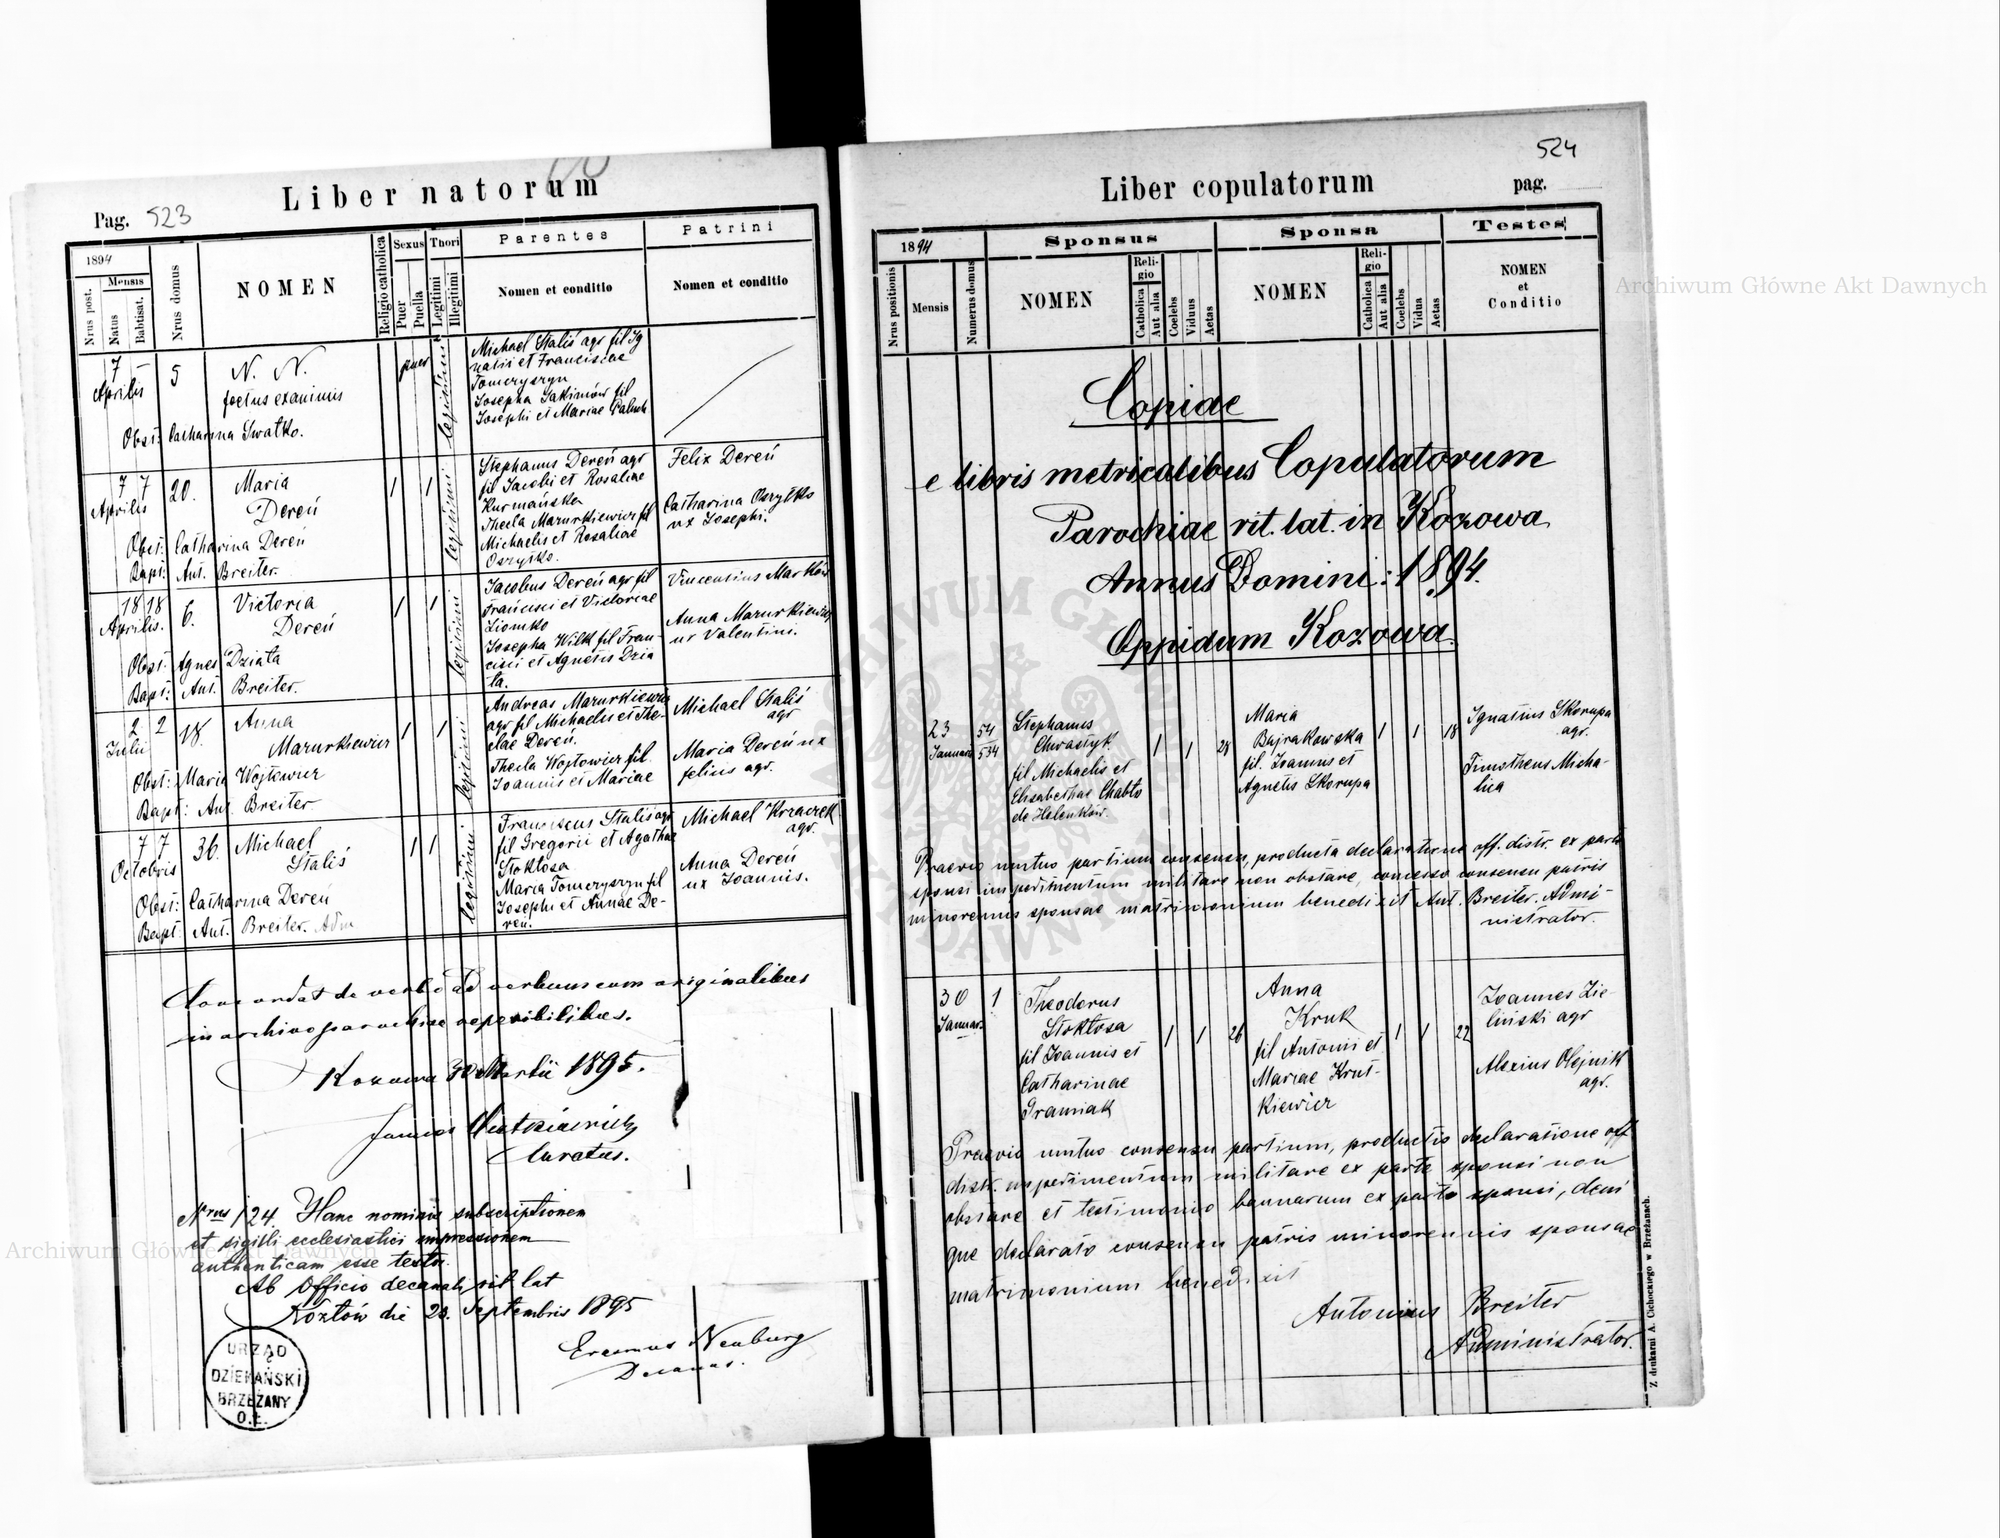 Liber natorum
Pag. 523
1894
Nrus post.
Mensis
Natus
Babtisat.
Nrus domus
NOMEN
Religio catholica
Sexus
Puer
Puella
Thori
Legitimi
Illegitimi
Parentes
Nomen et conditio
Patrini
Nomen et conditio
7
Aprilis
5
N. N.
foetus exanimis
Obst: Catharina Swatko.
puer
legitimi
Michael Staliś agr fil Ig
natii et Franciscae
Tomeryszyn
Josepha Jakimów fil
Josephi et Mariae Paluch
7 7
Aprilis
20.
Maria
Dereń
Obst: Catharina Dereń
Bapt: Ant. Breiter.
1
1
legitimi
Stephanus Dereń agr
fil Jacobi et Rosaliae
Kurmańska
Thecla Mazurkiewicz fil
Michaelis et Rosaliae
Oszytko.
Felix Dereń
Catharina Oszytko
ux Josephi.
18 18
Aprilis.
6.
Victoria
Dereń
Obst: Agnes Działa
Bapt: Ant. Breiter.
1
1
legitimi
Jacobus Dereń agr fil
Francisci et Victoriae
Ziomko
Josepha Wilk fil Fran-
cisci et Agnetis Dzia
ła.
Vincentius Marków
Anna Mazurkiewicz
ux Valentini.
2 2
Julii
18.
Anna
Mazurkiewicz
Obst: Maria Wojtewicz
Bapt: Ant. Breiter
1
1
legitimi
Andreas Mazurkiewicz
agr fil Michaelis et The-
clae Dereń.
Thecla Wojtowicz fil.
Joannis et Mariae
Michael Staliś
agr
Maria Dereń ux
felicis agr.
7 7
Octobris
36.
Michael
Staliś
Obst: Catharina Dereń
Bapt: Ant. Breiter. Adm
1
1
legitimi
Franciscus Staliś agr
fil Gregorii et Agathae
Stoktosa
Maria Tomeryszyn fil
Josephi et Annae De-
reń.
Michael Krzaczek
agr.
Anna Dereń
ux Joannis.
Concordat de verbo ad verbum cum originalibus
in archivo parochiae reperibilibus.
Kozowa 30 Martii 1895.
Curatus.
Nrus 124. Hanc nominis subscriptionem
et sigilli ecclesiastici impressionem
authenticam esse testor.
Ab Officio decanali rit lat
Kozłów die 23. Septembris 1895
Erasmus Neuburg
Decanus.
URZĄD
DZIEKAŃSKI
BRZEŻANY
O.Ł.
524
Liber copulatorum
pag.
1894
Nrus positionis
Mensis
Numerus domus
Sponsus
NOMEN
Religio
Catholica
Aut alia
Coelebs
Viduus
Aetas
Sponsa
NOMEN
Religio
Catholica
Aut alia
Coelebs
Vidua
Aetas
Testes
NOMEN
et
Conditio
Copiae
e libris metricalibus Copulatorum
Parochiae rit. lat. in Kozowa
Annus Domini: 1894.
Oppidum Kozowa.
23
Januarii
54
534
Stephanus
Chrastyk
fil Michaelis et
Elisabethae Chabło
de Helenków.
1
1
28
Maria
Bajrakowska
fil. Joannis et
Agnetis Skorupa
1
1
18
Ignatius Skorupa
agr.
Timotheus Micha-
lica
Praevio mutuo partium consensu, producta declaratione off. distr. ex parte
sponsi impedimentum militare non obstare, concesso consensu patris
minorennis sponsae matrimonium benedixit Ant. Breiter. Admi-
nistrator.
30
Januar.
1
Theodorus
Stoktosa
fil Joannis et
Catharinae
Framiak
1
1
26
Anna
Kruk
fil Antonii et
Mariae Krut-
kiewicz
1
1
22
Joannes Zie-
liński agr
Alexius Olejnik
agr.
Praevio mutuo consensu partium, productis declaratione off
distr. impedimentum militare ex parte sponsi non
obstare et testimonio bannarum ex parte sponsi, deni
que declarato consensu patris minorennis sponsae
matrimonium benedixit
Antonius Breiter
Administrator.
Z drukarni A. Cichockiego w Brzeżanach.
Archiwum Główne Akt Dawnych
Archiwum Główne Akt Dawnych
ARCHIWUM GŁÓWNE AKT DAWNYCH